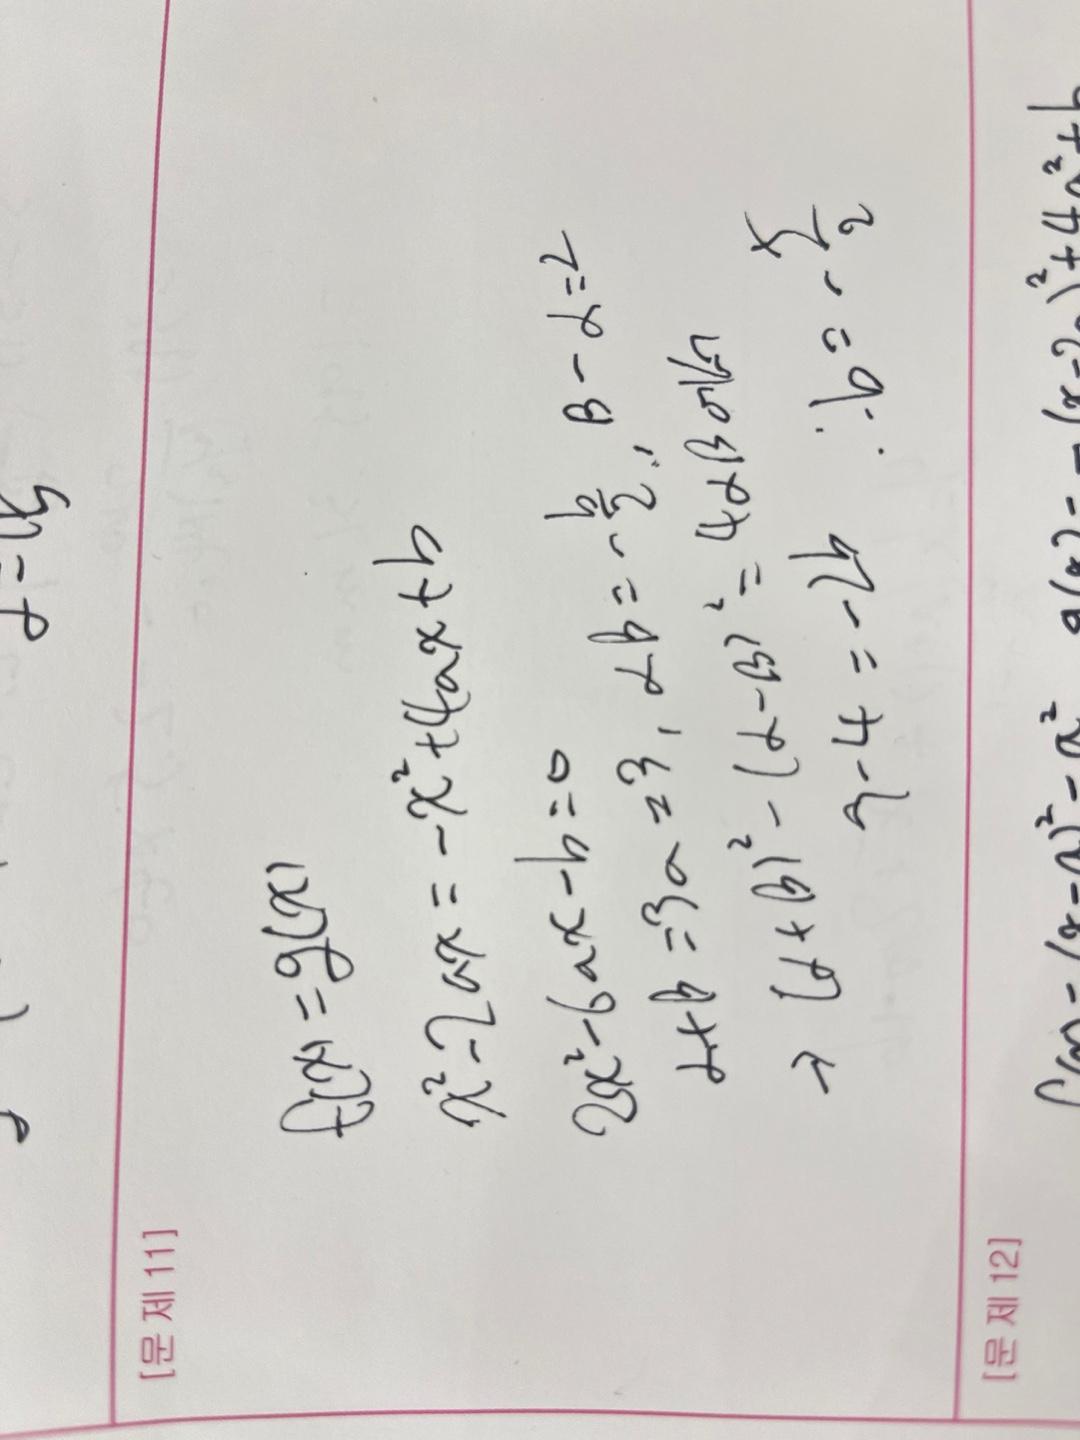 [문제 11]
f(x) = g(x)
x² - 2ax = -x² + 4ax + b
2x² - 6ax - b = 0
α + β = 3a = 3, αβ = - b/2, β - α = 2
(α + β)² - (α - β)² = 4αβ 이니
9 - 4 = -2b ∴ b = - 5/2
[문제 12]
f(x) = (x - a)² - a² g(x) = - (x - 2a)² + 4a² + b